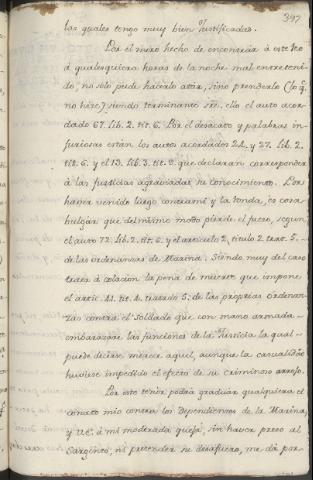 397
las quales tengo muy bien justificadas.
Por el mero hecho de encontrar á este Reo
á qualesquiera horas de la noche mal entreteni-
do, no solo pude hacerlo atar, sino prenderlo (lo q.
no hize,) siendo terminante sre. ello el auto acor-
dado 67. Lib. 2. tit. 6. Por el desacato y palabras in-
juriosas están los autos acordados 24. y 27. Lib. 2.
tit. 6. y el 13. Lib. 3. tit. 9. que declaran corresponder
á las justicias agraviadas su conocimiento. Por
haver venido luego contra mí y la ronda, es cosa
bulgar que del mismo modo pierde el fuero, segun
el auto 72. Lib. 2. tit. 6. y el articulo 2. titulo 2. trat. 5.
de las ordenanzas de Marina. Siendo muy del caso
traer á colacion la pena de muerte que impone
el artic. 41. tit. 4. tratado 5. de las proprias ordenan-
zas contra el Soldado que con mano armada
embarazare las funciones de la Justicia la qual
puede decirse merece aquel, aunque la casualidad
huviese impedido el efecto de su criminoso arrojo.
Por este tenor podrá graduar qualquiera el
conato mio contra los Dependientes de la Marina,
y V.E. á mi moderada quexa, sin haver preso al
Sargento, ni pretender su desafuero, me dá por